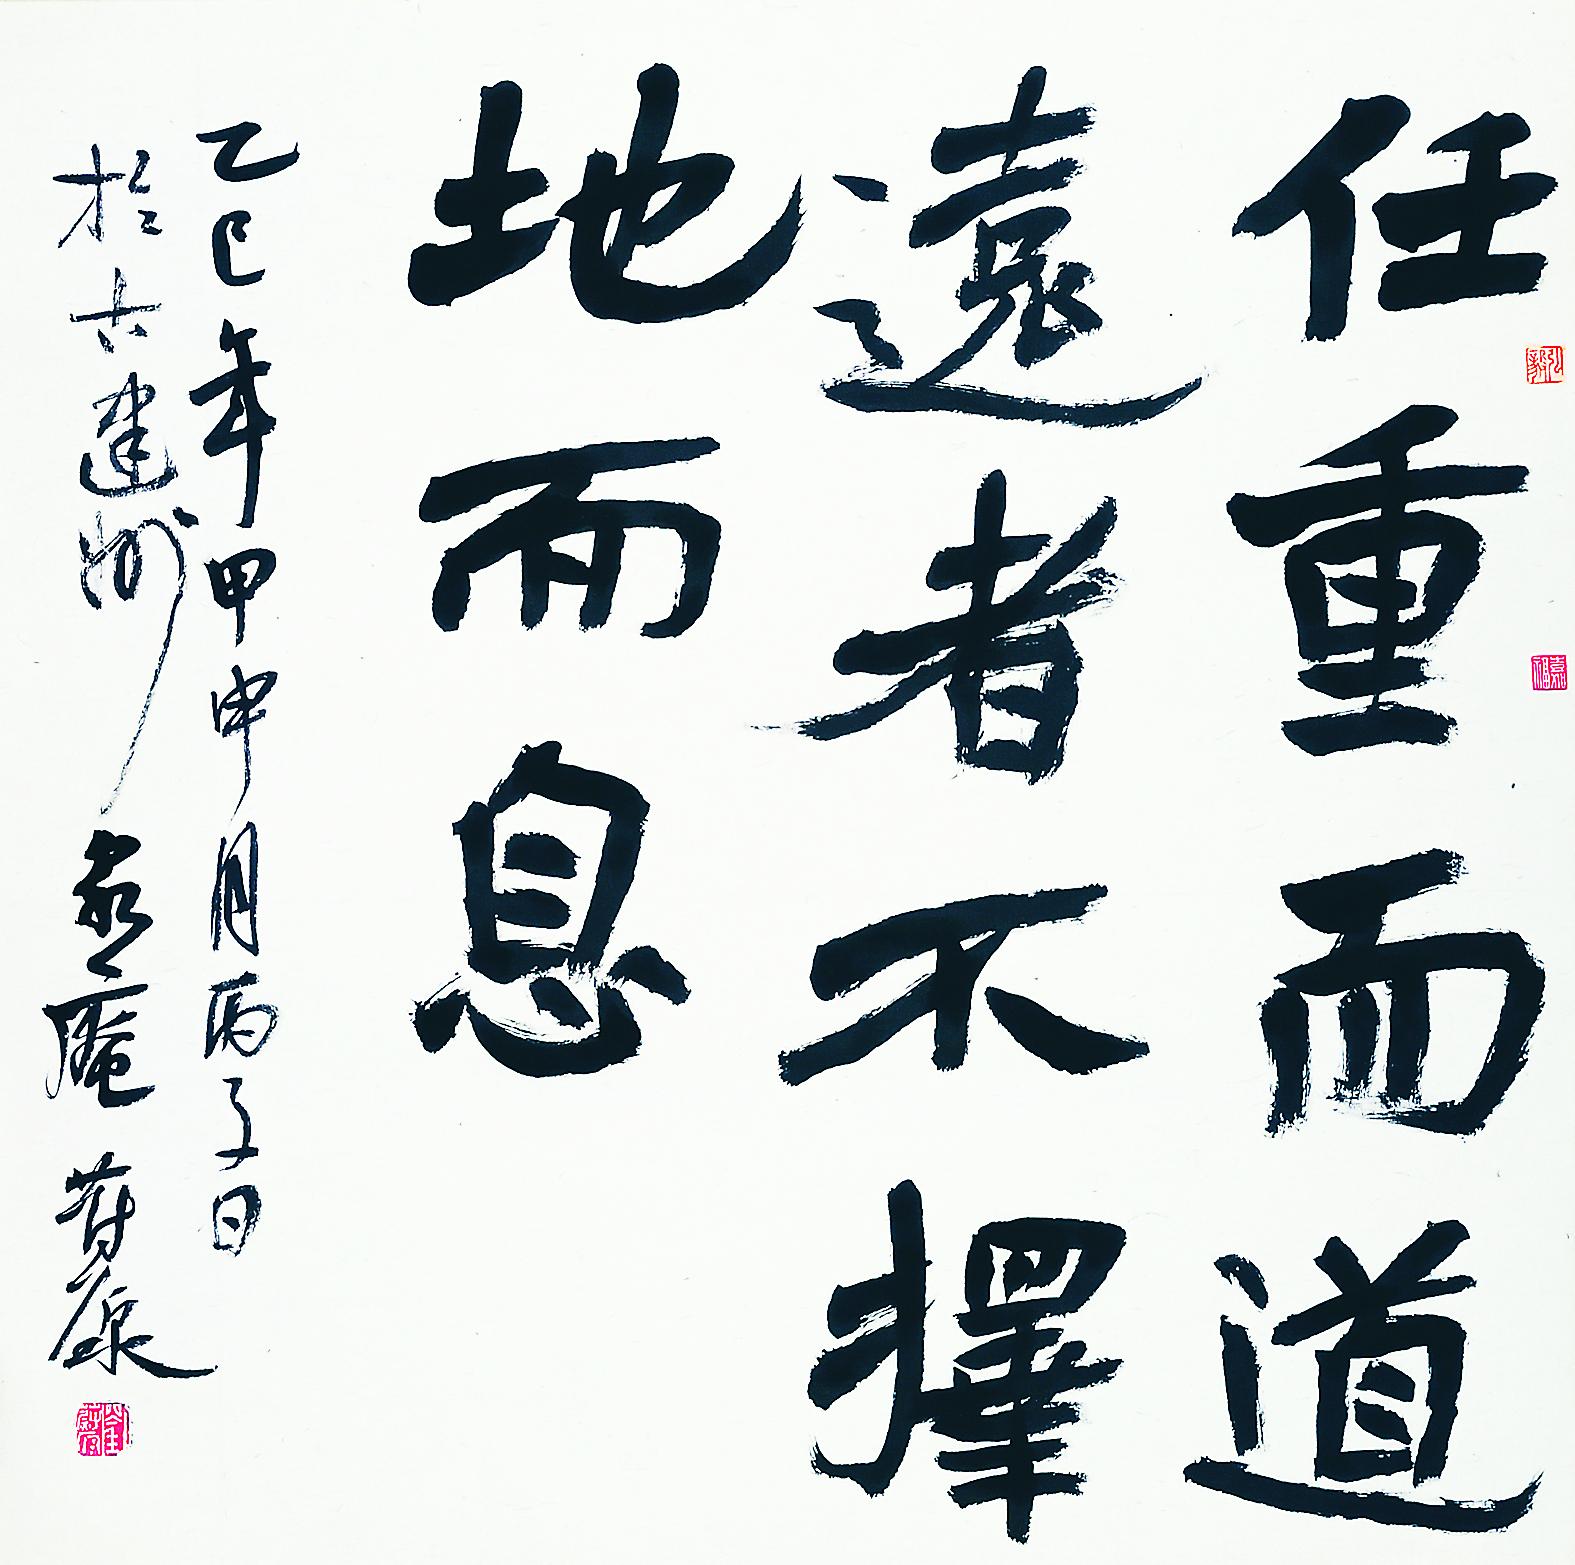 任重而道
遠者不擇
地而息
乙巳年甲申月丙子日
於古建州
庵